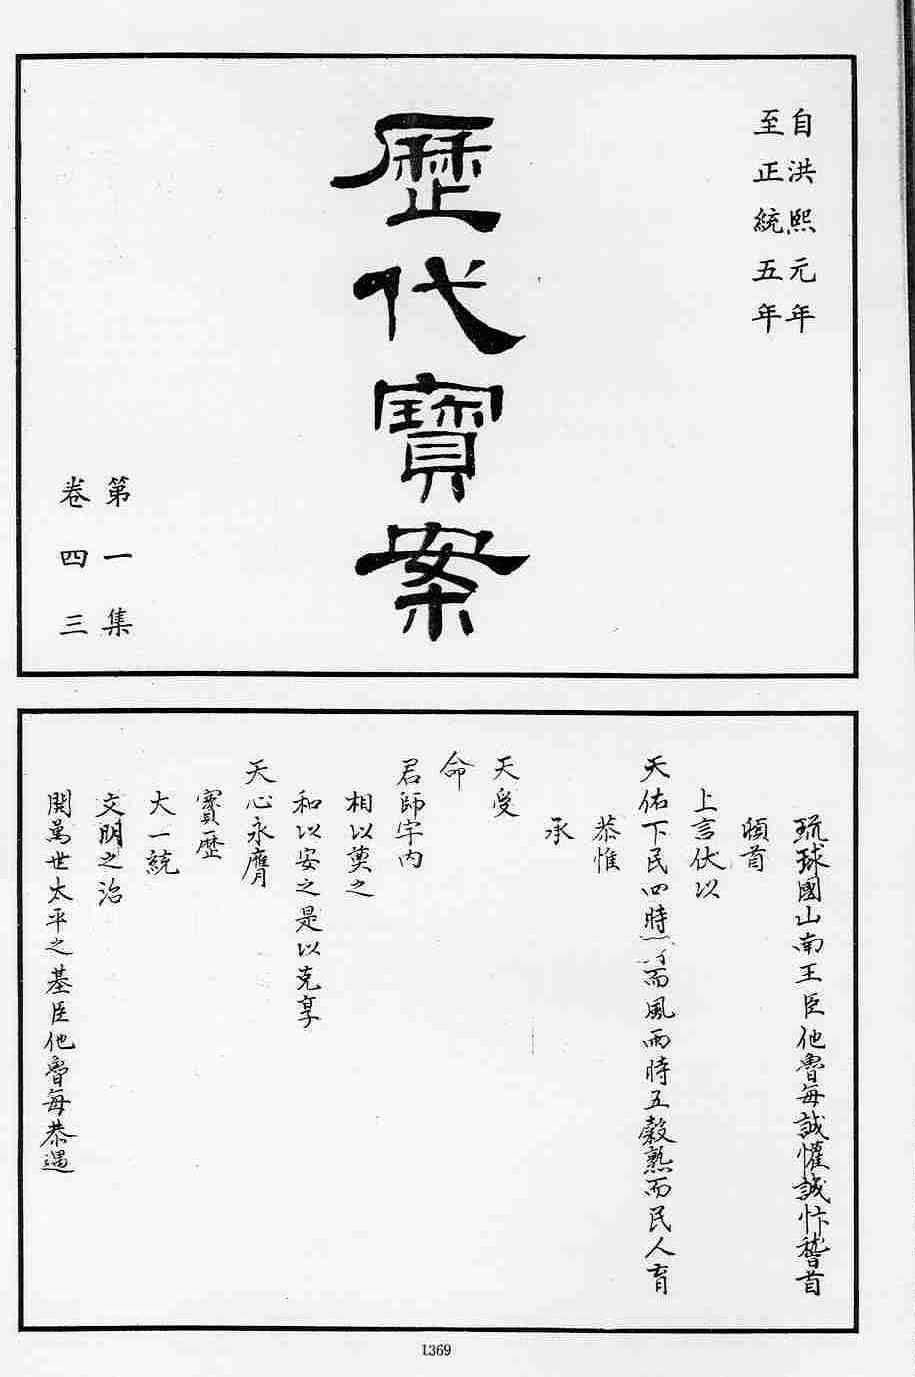 自洪熙元年
至正統五年
歷代寶案
第一集
卷四三
琉球國山南王臣他魯每誠懽誠忭稽首
頓首
上言伏以
天佑下民四時而風雨時五穀熟而民人育
恭惟
承
天受
命
君師宇内
相以奠之
和以安之是以克享
天心永膺
寳歷
大一統
文明之治
開萬世太平之基臣他魯每恭遇
1369